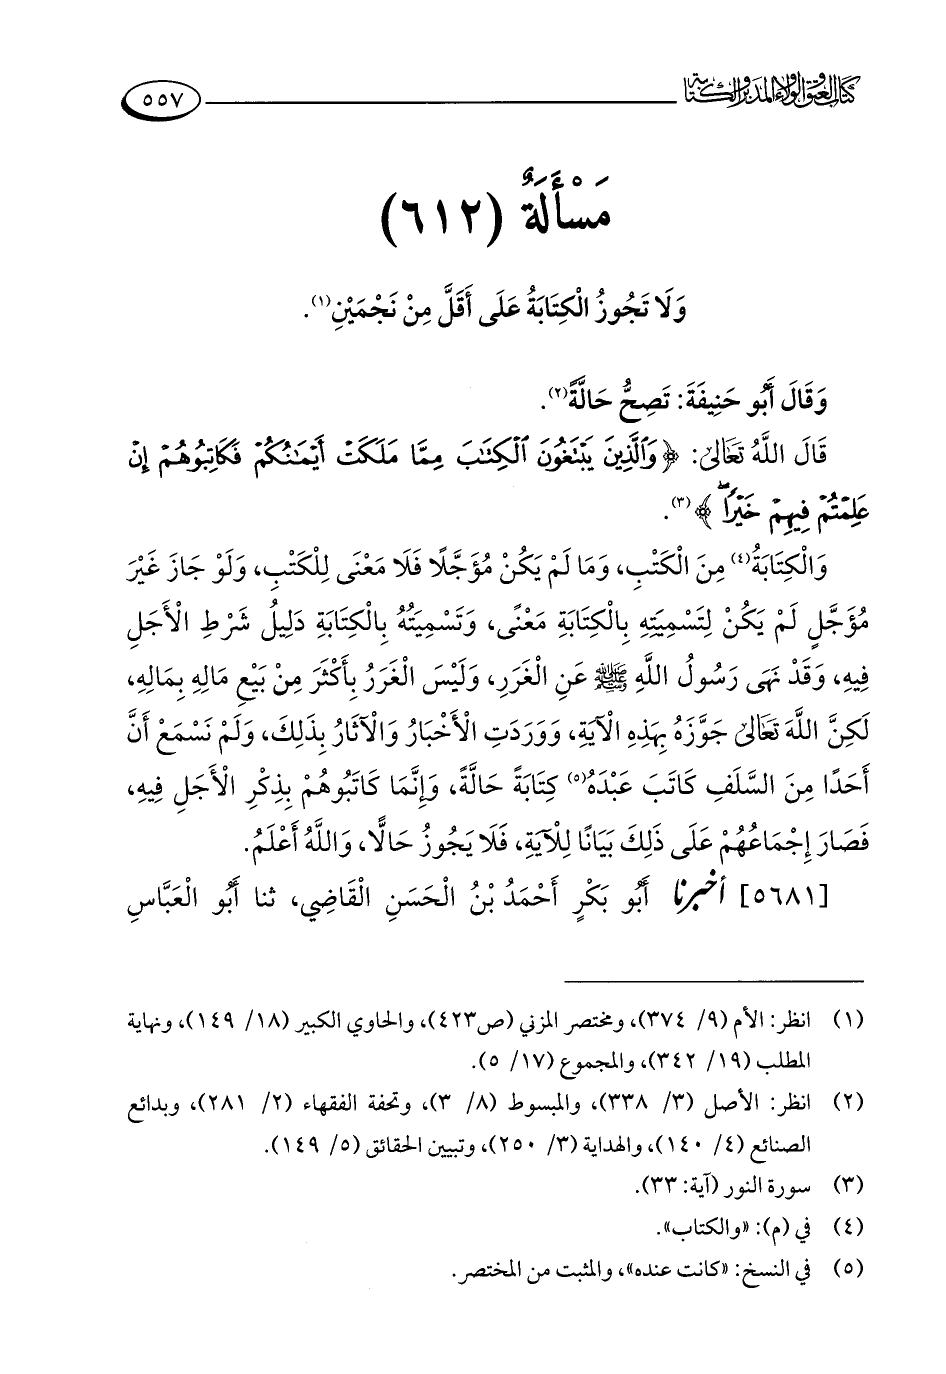 كتاب العتق والولاء والمدبر والكتابة ٥٥٧
مَسْأَلَةٌ (٦١٢)
وَلَا تَجُوزُ الْكِتَابَةُ عَلَى أَقَلَّ مِنْ نَجْمَيْنِ(١).
وَقَالَ أَبُو حَنِيفَةَ: تَصِحُّ حَالَّةً(٢).
قَالَ اللَّهُ تَعَالَىٰ: ﴿وَٱلَّذِينَ يَبْتَغُونَ ٱلْكِتَٰبَ مِمَّا مَلَكَتْ أَيْمَٰنُكُمْ فَكَاتِبُوهُمْ إِنْ
عَلِمْتُمْ فِيهِمْ خَيْرًاۖ﴾(٣).
وَالْكِتَابَةُ(٤) مِنَ الْكَتْبِ، وَمَا لَمْ يَكُنْ مُؤَجَّلًا فَلَا مَعْنَى لِلْكَتْبِ، وَلَوْ جَازَ غَيْرَ
مُؤَجَّلٍ لَمْ يَكُنْ لِتَسْمِيَتِهِ بِالْكِتَابَةِ مَعْنًى، وَتَسْمِيَتُهُ بِالْكِتَابَةِ دَلِيلُ شَرْطِ الْأَجَلِ
فِيهِ، وَقَدْ نَهَى رَسُولُ اللَّهِ ﷺ عَنِ الْغَرَرِ، وَلَيْسَ الْغَرَرُ بِأَكْثَرَ مِنْ بَيْعِ مَالِهِ بِمَالِهِ،
لَكِنَّ اللَّهَ تَعَالَىٰ جَوَّزَهُ بِهَذِهِ الْآيَةِ، وَوَرَدَتِ الْأَخْبَارُ وَالْآثَارُ بِذَلِكَ، وَلَمْ نَسْمَعْ أَنَّ
أَحَدًا مِنَ السَّلَفِ كَاتَبَ عَبْدَهُ(٥) كِتَابَةً حَالَّةً، وَإِنَّمَا كَاتَبُوهُمْ بِذِكْرِ الْأَجَلِ فِيهِ،
فَصَارَ إِجْمَاعُهُمْ عَلَى ذَلِكَ بَيَانًا لِلْآيَةِ، فَلَا يَجُوزُ حَالًّا، وَاللَّهُ أَعْلَمُ.
[٥٦٨١] أخبرنا أَبُو بَكْرٍ أَحْمَدُ بْنُ الْحَسَنِ الْقَاضِي، ثنا أَبُو الْعَبَّاسِ
(١) انظر: الأم (٩/ ٣٧٤)، ومختصر المزني (ص٤٢٣)، والحاوي الكبير (١٨/ ١٤٩)، ونهاية
المطلب (١٩/ ٣٤٢)، والمجموع (١٧/ ٥).
(٢) انظر: الأصل (٣/ ٣٣٨)، والمبسوط (٨/ ٣)، وتحفة الفقهاء (٢/ ٢٨١)، وبدائع
الصنائع (٤/ ١٤٠)، والهداية (٣/ ٢٥٠)، وتبيين الحقائق (٥/ ١٤٩).
(٣) سورة النور (آية: ٣٣).
(٤) في (م): «والكتاب».
(٥) في النسخ: «كانت عنده»، والمثبت من المختصر.